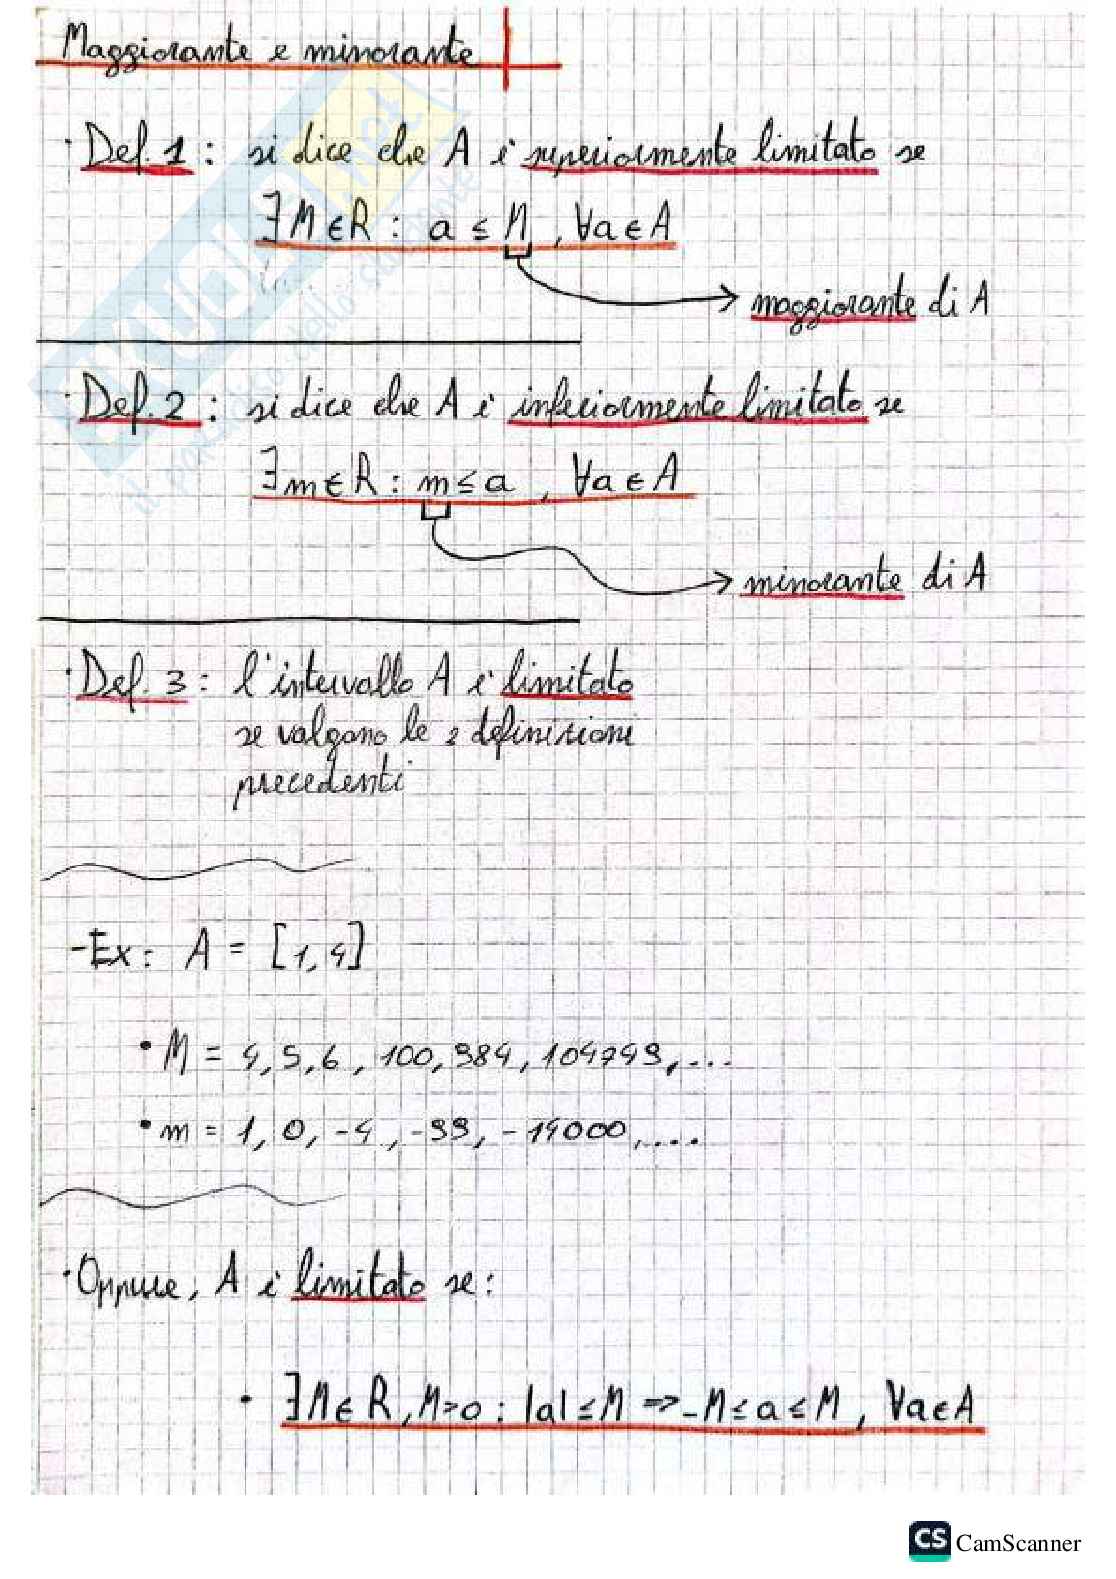 Maggiorante e minorante
· Def. 1 : si dice che A è superiormente limitato se
∃ M ∈ R : a ≤ M , ∀a ∈ A
→ maggiorante di A
· Def. 2 : si dice che A è inferiormente limitato se
∃ m ∈ R : m ≤ a , ∀a ∈ A
→ minorante di A
· Def. 3 : l'intervallo A è limitato
se valgono le 2 definizioni
precedenti
- Ex : A = [1, 4]
• M = 4, 5, 6, 100, 984, 104749, ...
• m = 1, 0, -4, -99, -14000, ....
· Oppure, A è limitato se :
· ∃ M ∈ R, M>0 : |a| ≤ M => -M ≤ a ≤ M , ∀a ∈ A
CS CamScanner